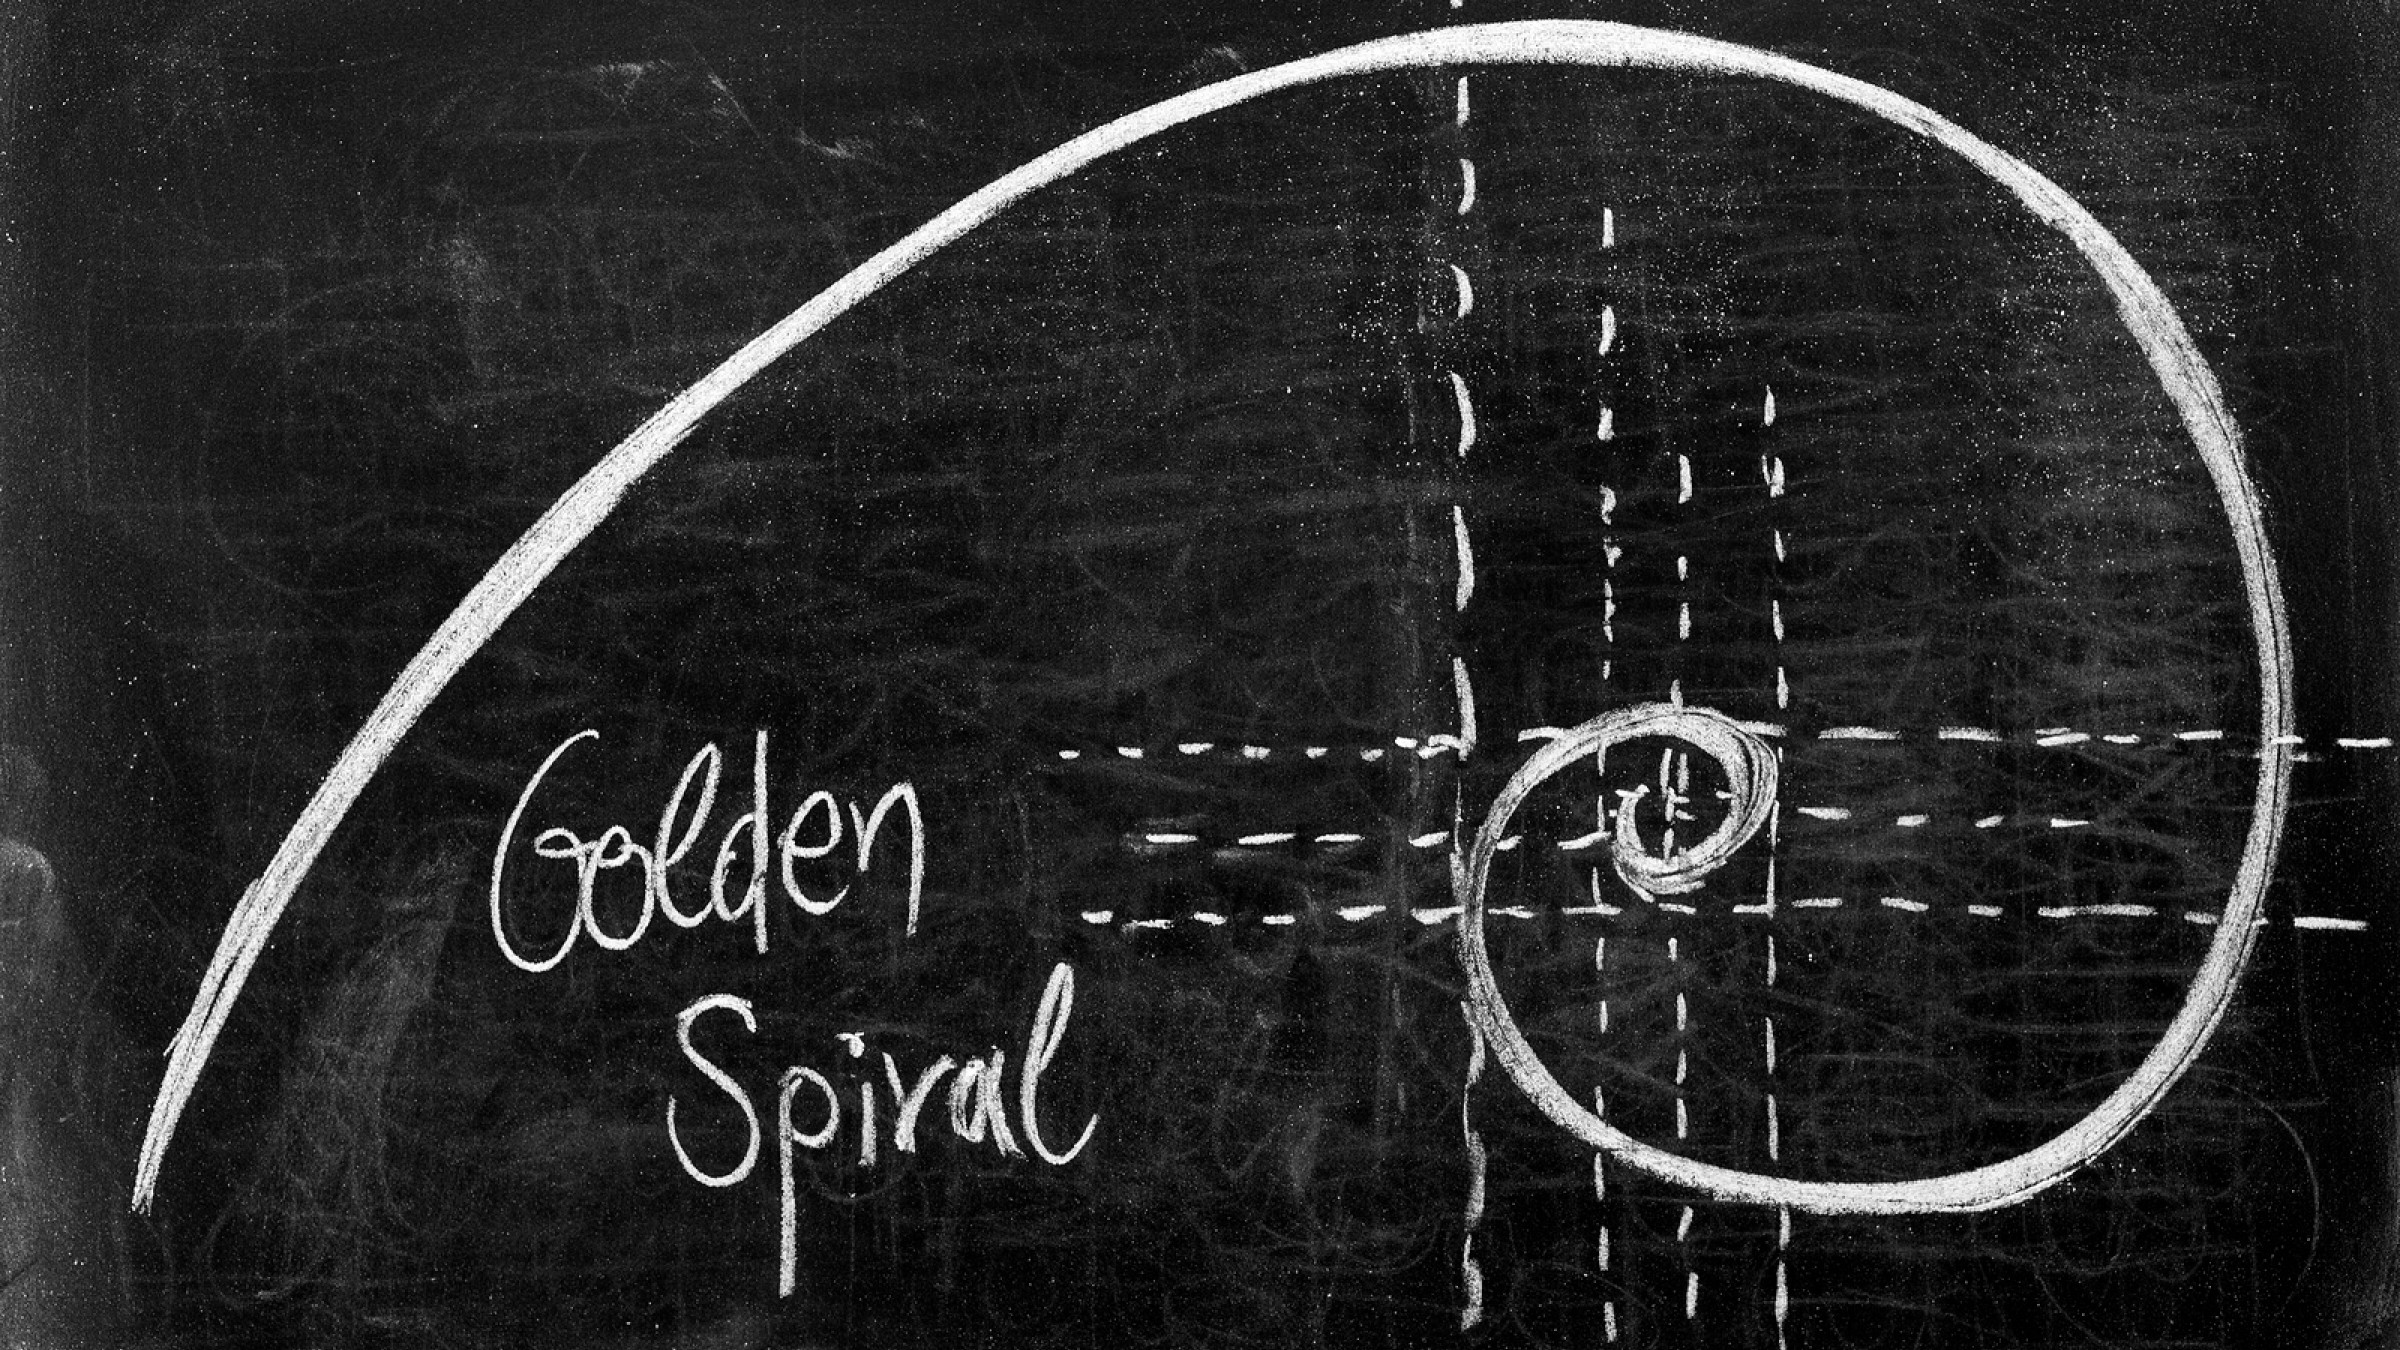 Golden
Spiral